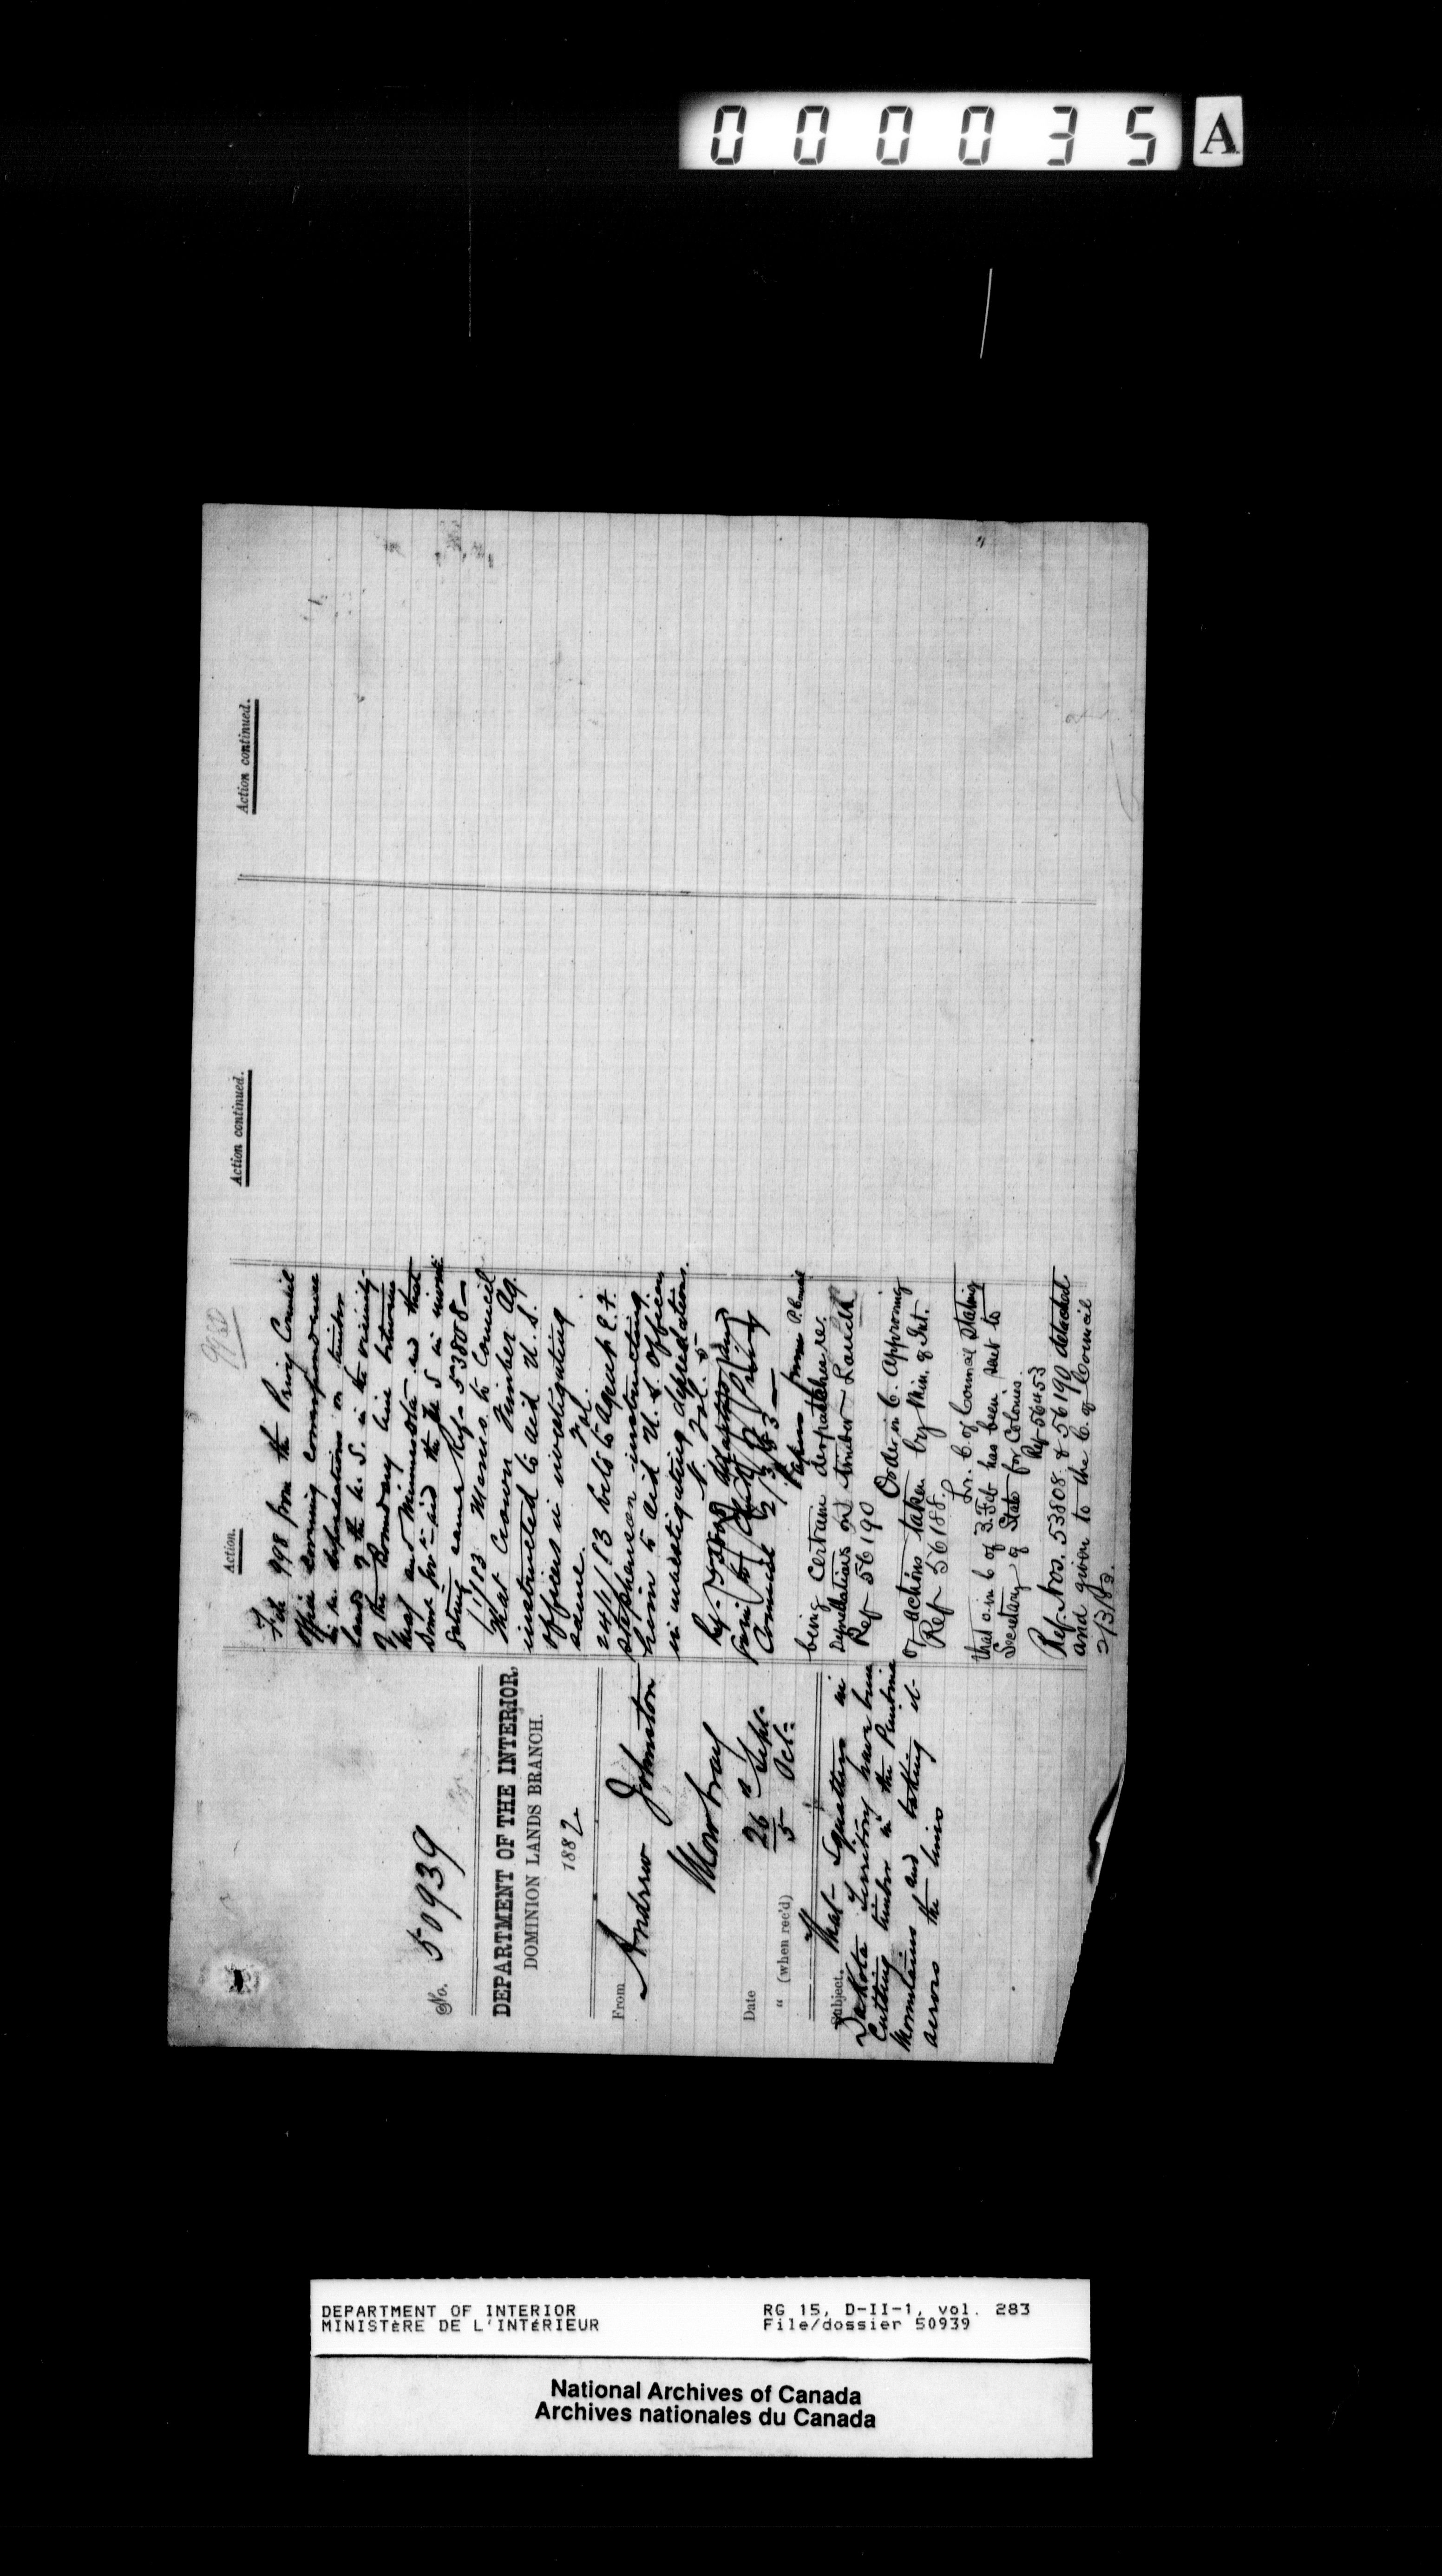 000035 A
No. 50939
DEPARTMENT OF THE INTERIOR,
DOMINION LANDS BRANCH.
1882
From Andrew Johnston
Mowbray
Date 26th Sept.
" (when rec'd) 5 Oct.
Subject. That Squatters in
Dakota Territory have been
Cutting timber in the Pembina
Mountains and taking it
across the lines
Action.
File 998 from the Privy Council
Office covering correspondence
in re depredations on timber
lands of the U. S. in the vicinity
of the Boundary line between
that and Minnesota and that
Govt to aid the U S in
same Ref 53808
1/83 Memo to Council
that Crown Timber Ag.
instructed to aid U. S.
officers in investigating
same.
24/1/83 Let to Agent C. T.
Stephenson instructing
him to aid U. S. Officers
in investigating depredations.
Council 2/3/83
Papers from P. Council
being certain despatches re.
Depredations on timber Lands
Ref 56190
Order in C. Approving
of actions taken by Min. of Int.
Ref 56188.
Lr. C. of Council stating
that o. in C of 3. Feb has been sent to
Secretary of State for Colonies.
Ref 56453
Ref. Nos. 53808 & 56190 detached
and given to the C. of Council
2/3/83.
Action continued.
Action continued.
DEPARTMENT OF INTERIOR RG 15, D-II-1, vol. 283
MINISTÈRE DE L'INTÉRIEUR File/dossier 50939
National Archives of Canada
Archives nationales du Canada